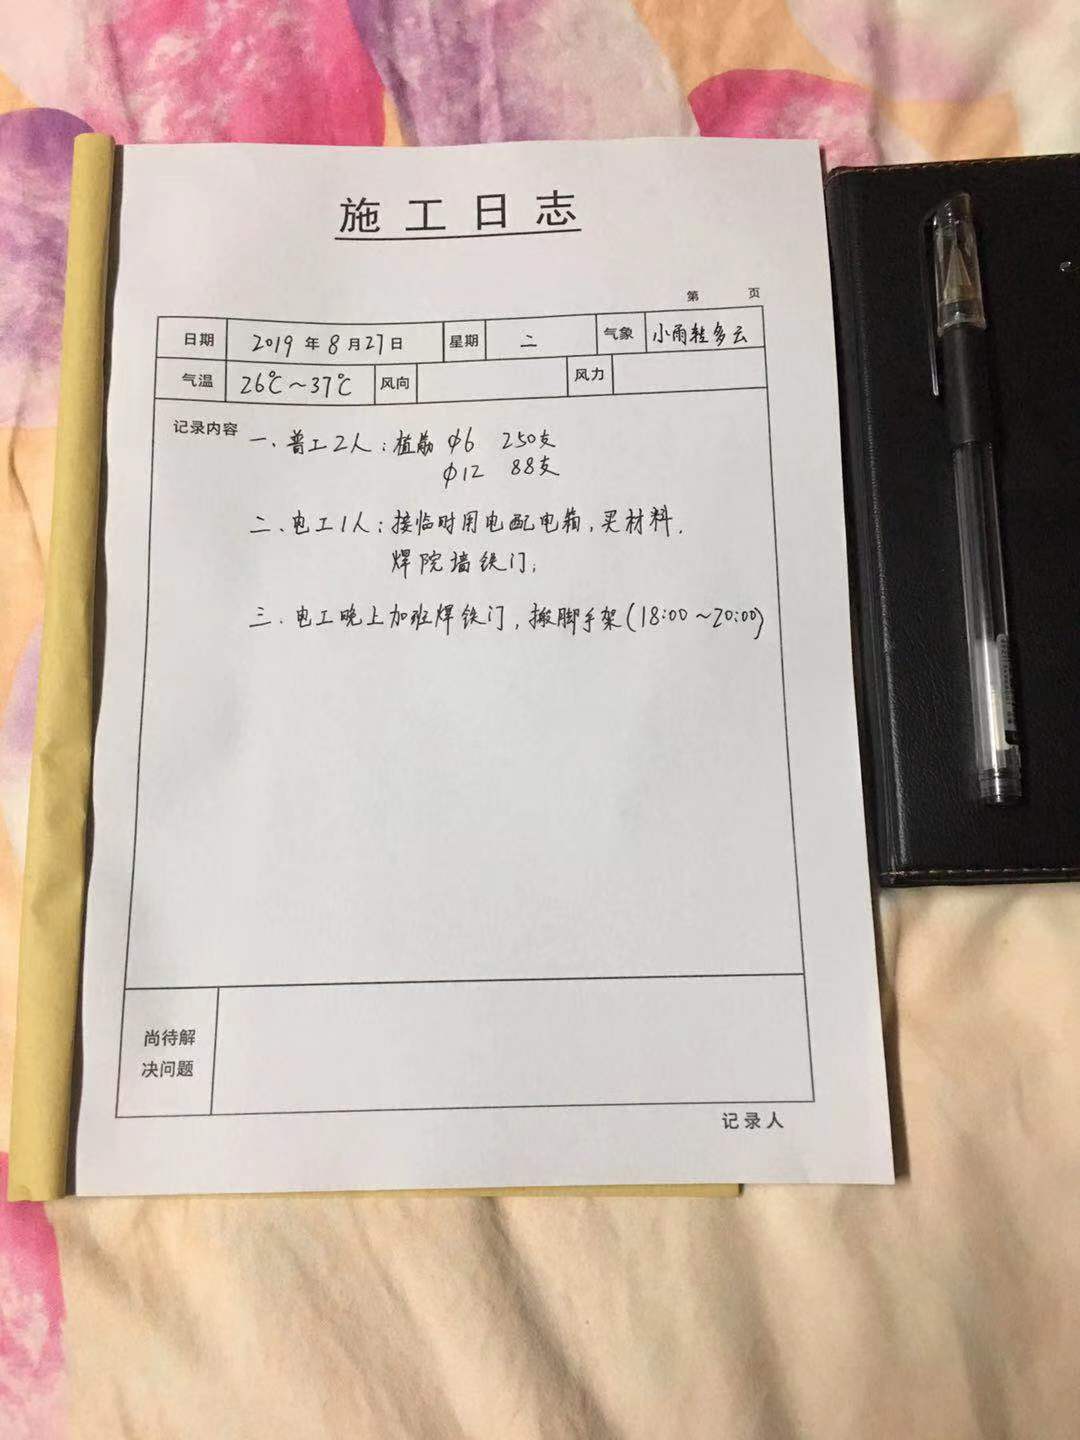 施工日志
第 页
日期 2019年8月27日 星期 二 气象 小雨转多云
气温 26℃~37℃ 风向 风力
记录内容 一、普工2人：植筋 φ6 250支
φ12 88支
二、电工1人：接临时用电配电箱，买材料.
焊院墙铁门；
三、电工晚上加班焊铁门，搬脚手架(18:00~20:00)
尚待解
决问题
记录人